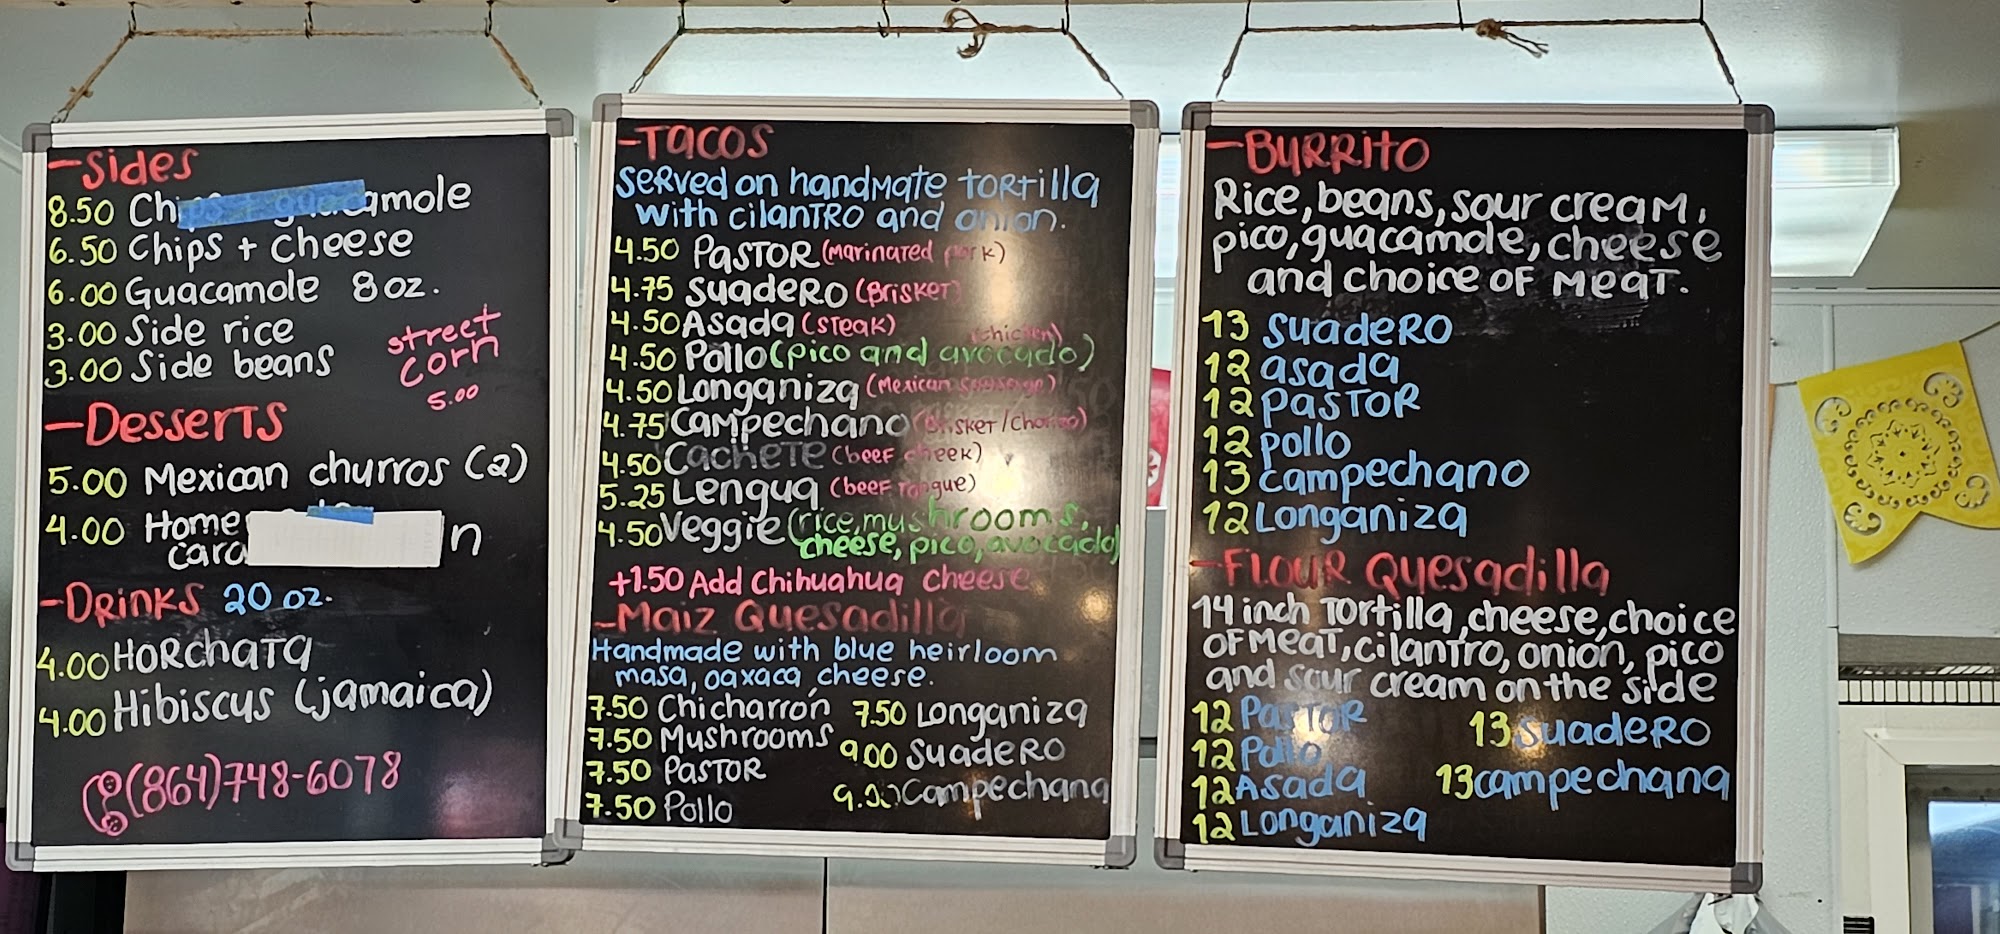 -Sides
8.50 Chips + guacamole
6.50 Chips + Cheese
6.00 Guacamole 8 oz.
3.00 Side rice
3.00 Side beans
street
corn
5.00
-Desserts
5.00 Mexican churros (2)
4.00 Home
cara n
-Drinks 20 oz.
4.00 Horchata
4.00 Hibiscus (jamaica)
(864)748-6078
-Tacos
Served on handmate tortilla
with cilantro and onion.
4.50 Pastor (Marinated pork)
4.75 Suadero (Brisket)
4.50 Asada (steak)
(chicken)
4.50 Pollo (pico and avocado)
4.50 Longaniza (Mexican sausage)
4.75 Campechano (Brisket/Chorizo)
4.50 Cachete (beef cheek)
5.25 Lengua (beef tongue)
4.50 Veggie (rice, mushrooms,
cheese, pico, avocado)
+1.50 Add Chihuahua cheese
-Maiz Quesadilla
Handmade with blue heirloom
masa, oaxaca cheese.
7.50 Chicharrón 7.50 Longaniza
7.50 Mushrooms 9.00 Suadero
7.50 Pastor 9.00 Campechana
7.50 Pollo
-Burrito
Rice, beans, sour cream,
pico, guacamole, cheese
and choice of meat.
13 Suadero
12 asada
12 pastor
12 pollo
13 campechano
12 Longaniza
-Flour Quesadilla
14 inch tortilla, cheese, choice
of meat, cilantro, onion, pico
and sour cream on the side
12 Pastor 13 Suadero
12 Pollo
12 Asada 13 campechana
12 Longaniza